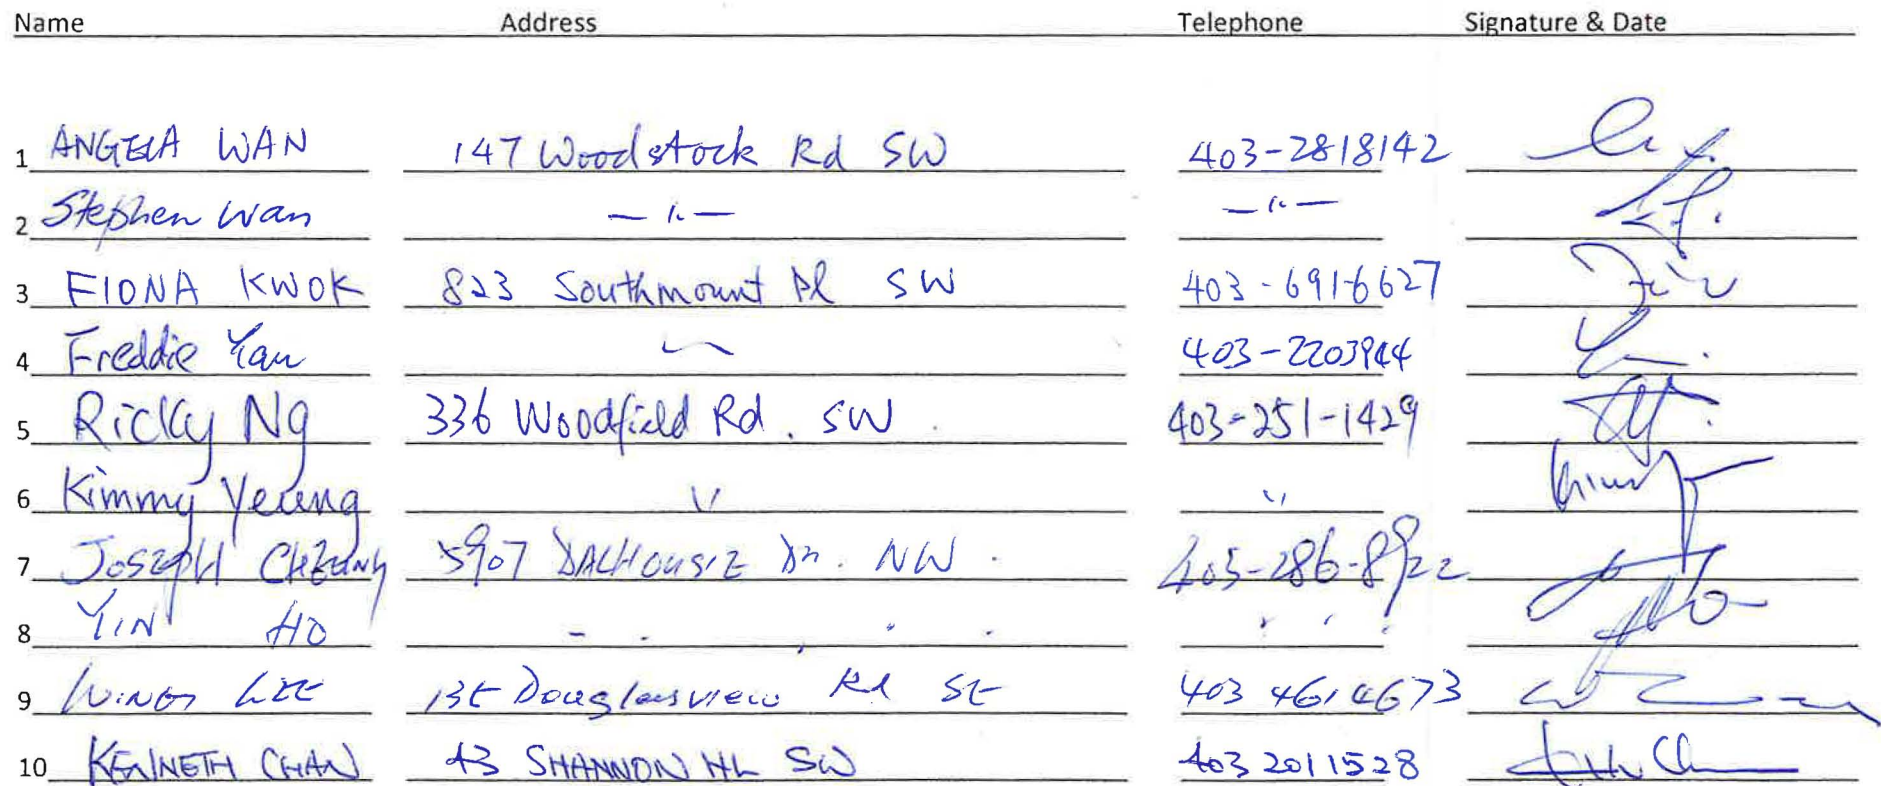 Name Address Telephone Signature & Date
1 ANGELA WAN 147 Woodstock Rd SW 403-2818142
2 Stephen Wan — " — — " —
3 FIONA KWOK 823 Southmount Pl SW 403-691-6627
4 Freddie Yau 403-2203944
5 Ricky Ng 336 Woodfield Rd. SW. 403-251-1429
6 Kimmy Yeung " "
7 JOSEPH CHEUNG 5907 DALHOUSIE Dr. NW. 403-286-8922
8 YIN HO
9 WING LEE Douglasview Rd SE 403 461 4673
10 KENNETH CHAN 43 SHANNON HL SW 403 2011528